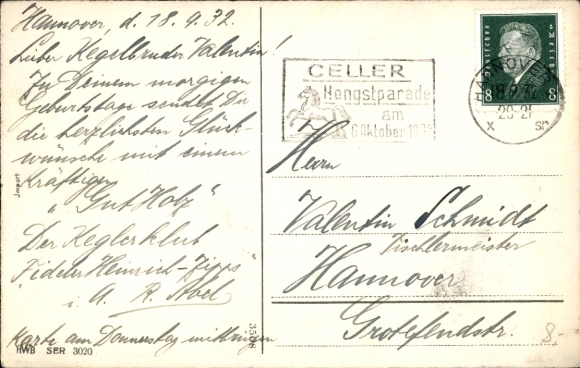 Hannover, d. 18.9.32.
Lieber Kegelbruder Valentin!
Zu Deinem morgigen
Geburtstage sendet Dir
die herzlichsten Glück-
wünsche mit einem
kräftigen
"Gut Holz"
Der Keglerklub
"Fideler Heinrich-
i. A. R.
Karte am Donnerstag mitbringen
HWB SER 3020
Import
3508
CELLER
Hengstparade
am
6. Oktober 1932
HANNOVER
18.9.32
20-21
Deutsches Reich
8 8
Herrn
Valentin Schmidt
Tischlermeister
Hannover
Grotefendstr.
8.-